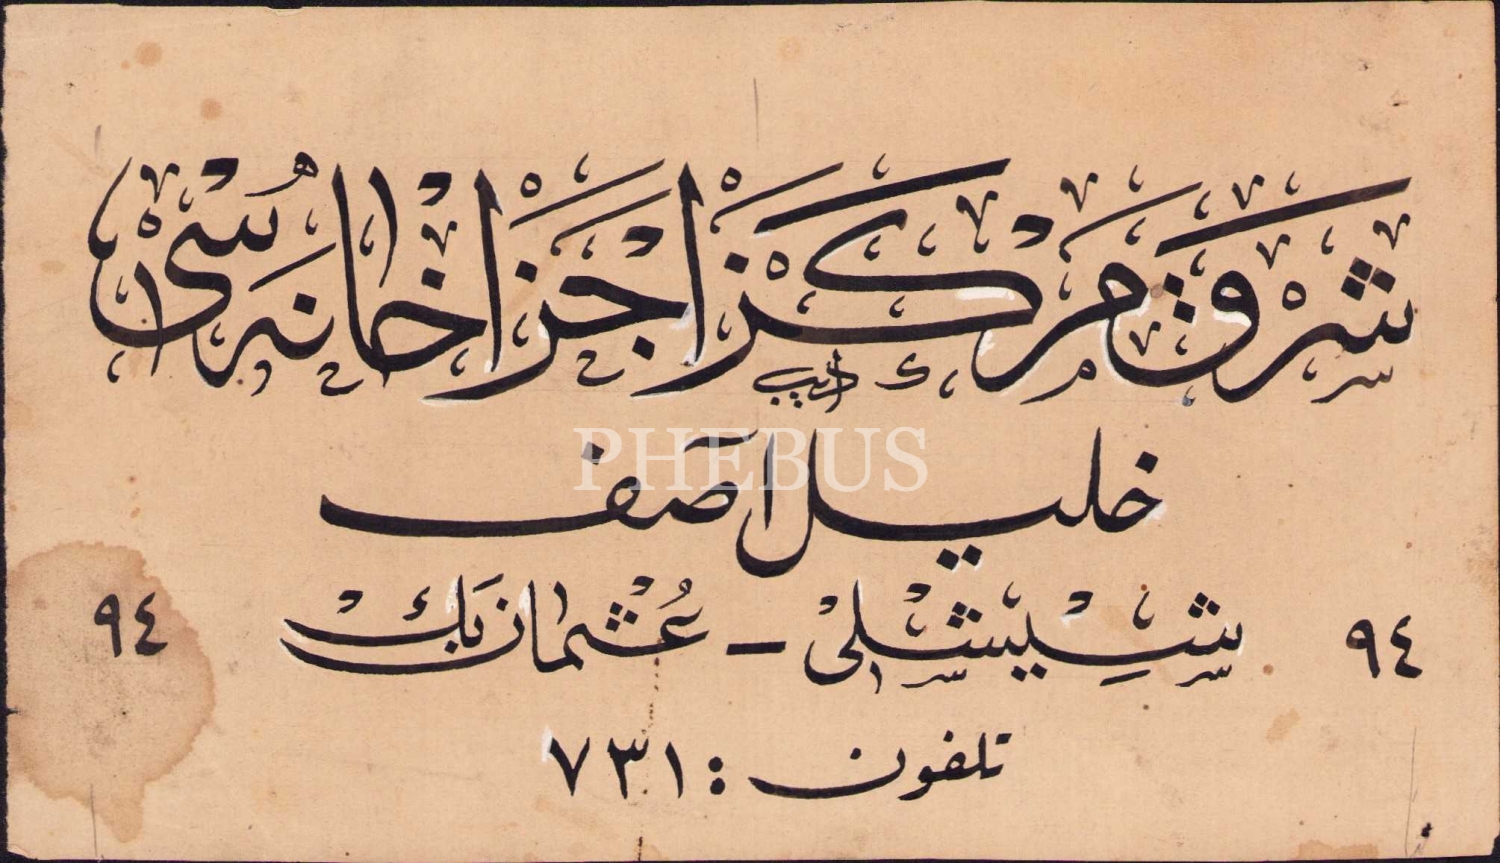 شرق مركز اجزاخانه سی
خليل آصف
٩٤ شيشلى – عثمان بك ٩٤
تلفون : ٧٣١
PHEBUS